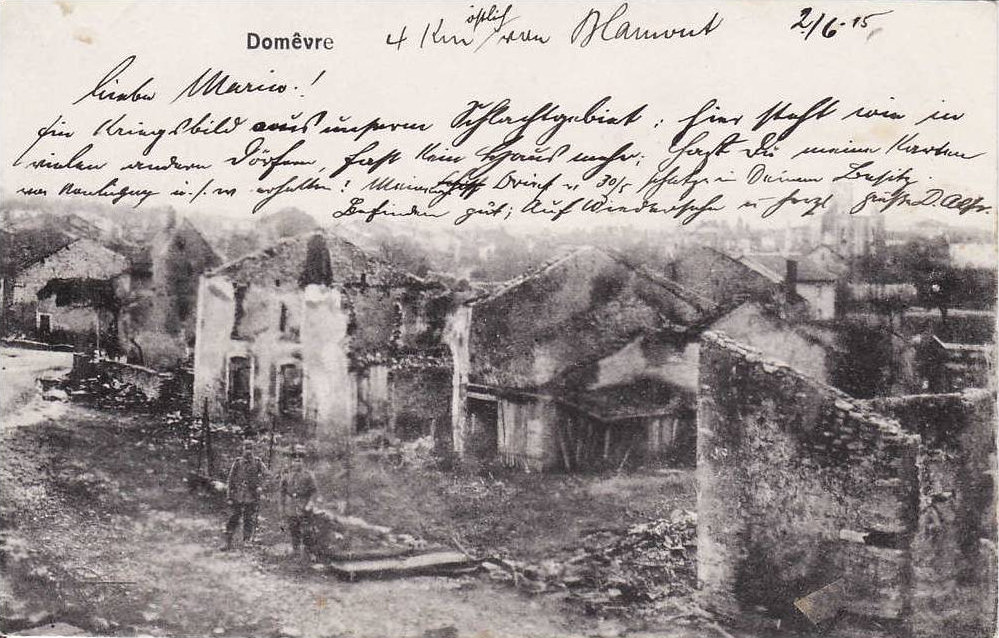 Domêvre 4 Km östlich von Blamont 2/6-15
liebe Marie!
Ein Kriegsbild aus unserm Schlachtgebiet; hier steht wie in
vielen andern Dörfern, fast kein Haus mehr; hast Du meine Karten
von u.s.w. erhalten! Deinen Brief v. 30/5 in Deinem Besitz.
Befinden gut; Auf Wiedersehn u herzl Grüße D.